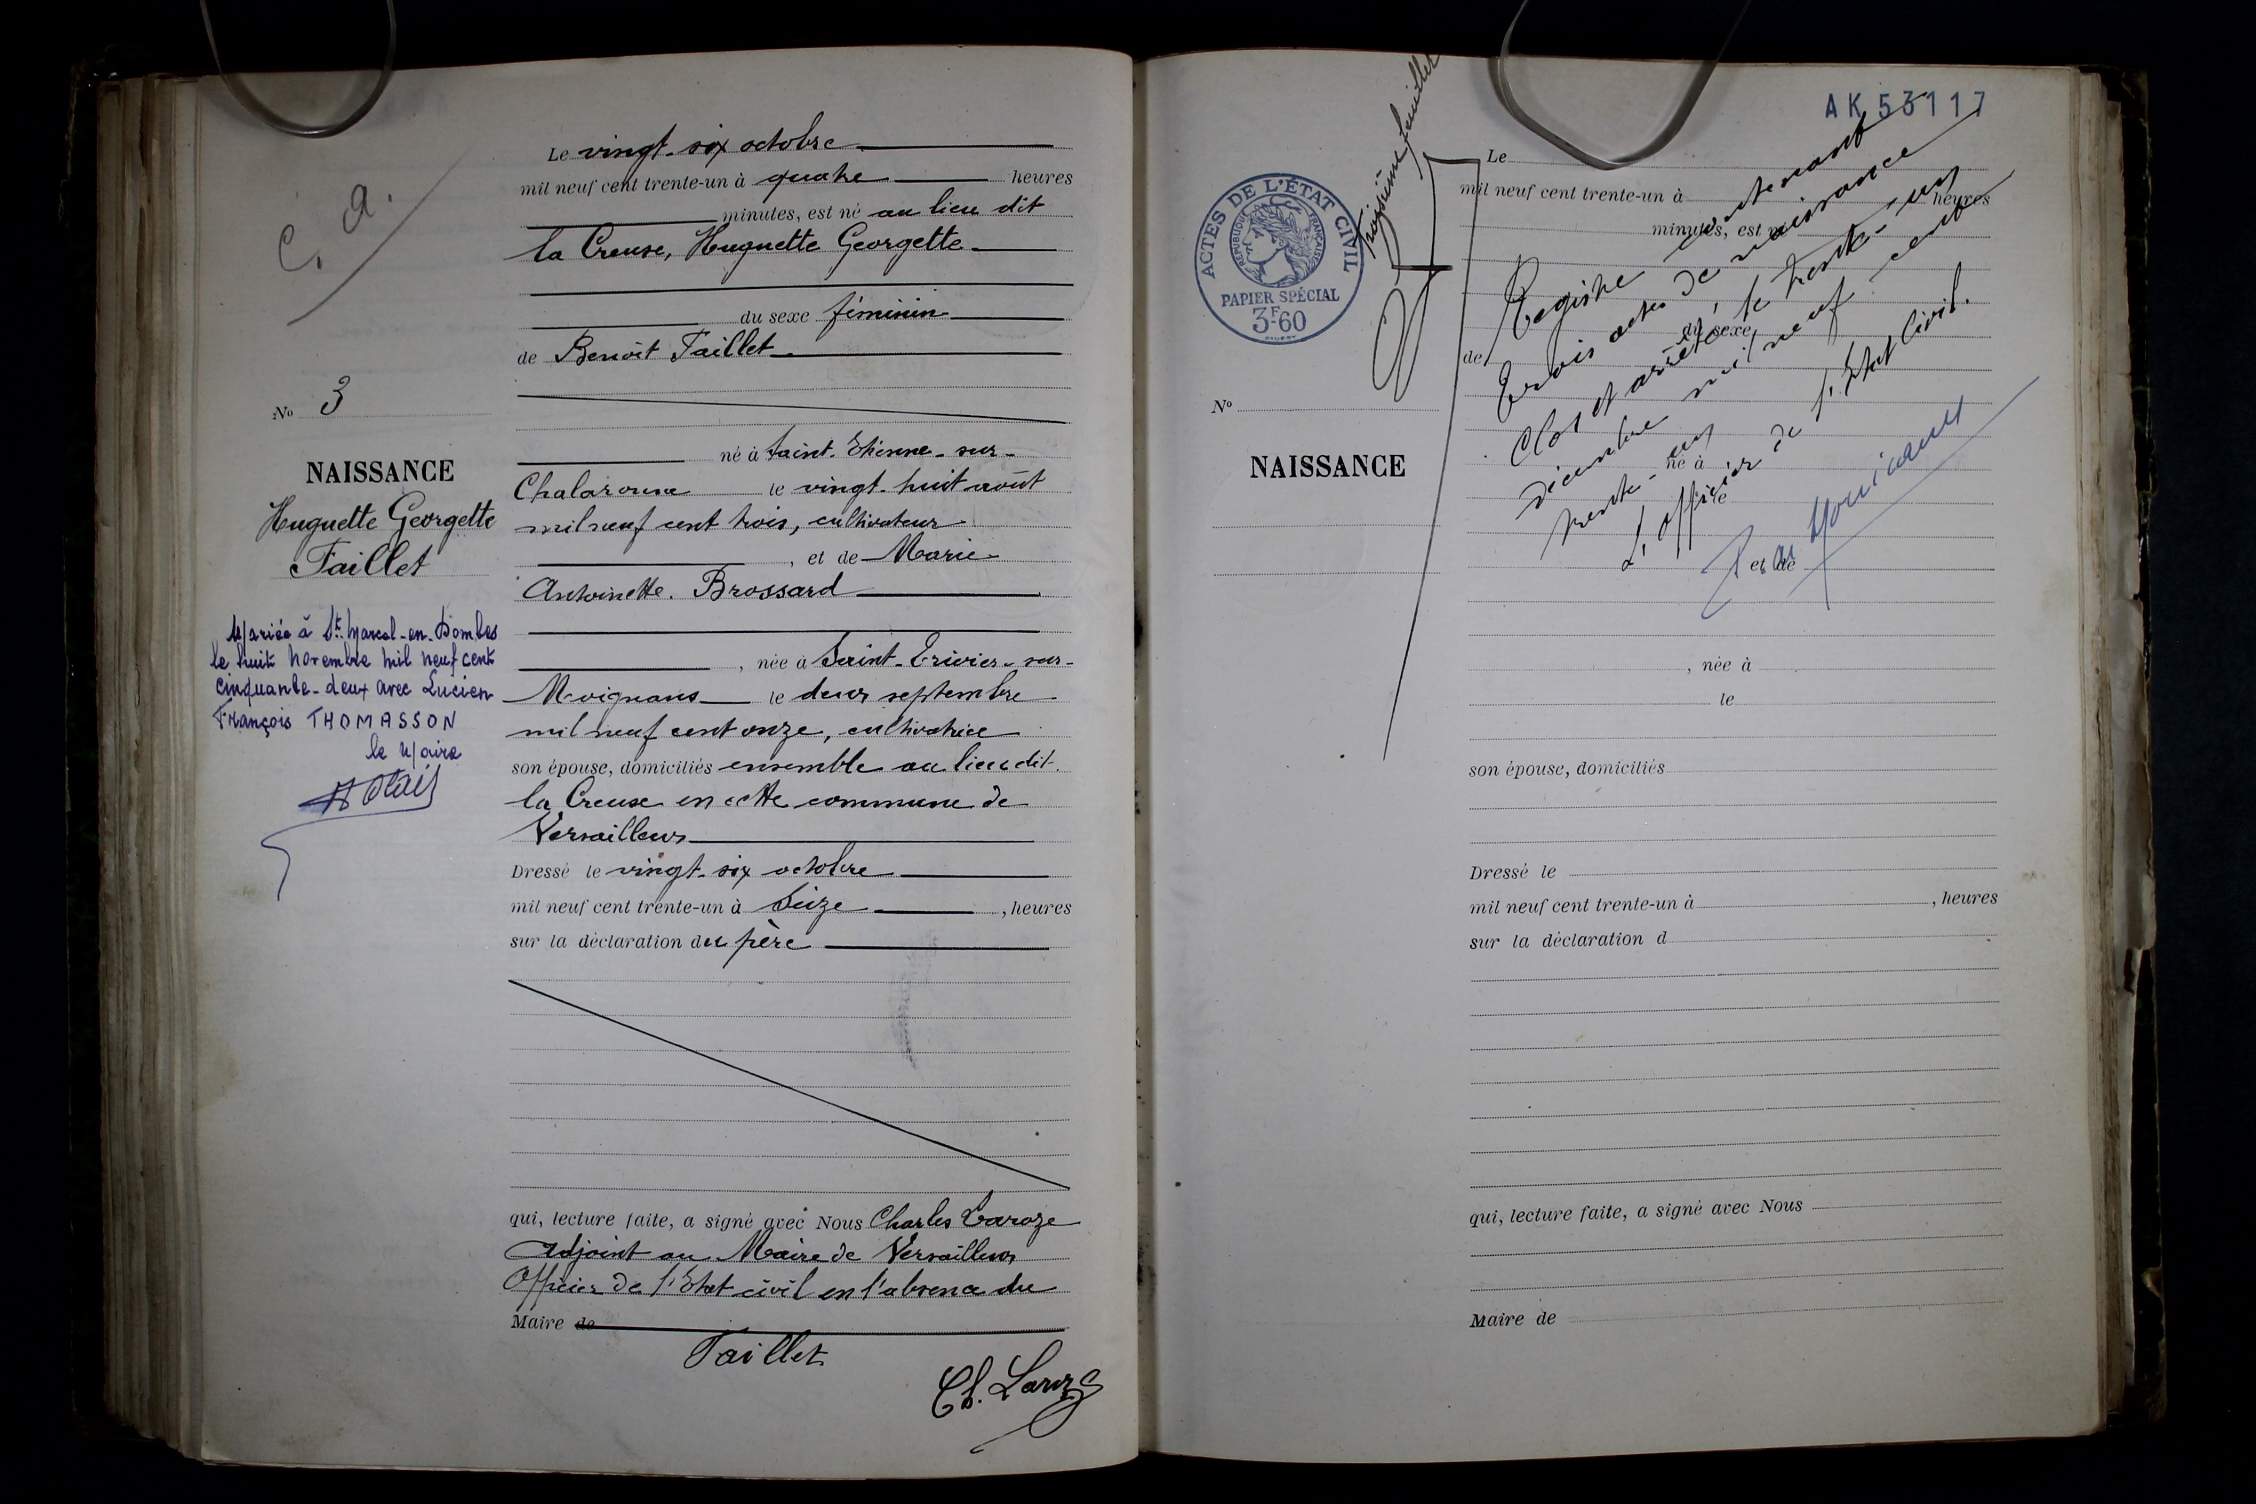 C. A.
No 3
NAISSANCE
Huguette Georgette
Taillet
Mariée à St Marcel-en-Dombes
le huit novembre mil neuf cent
cinquante-deux avec Lucien
François THOMASSON
le Maire
Le vingt-six octobre
mil neuf cent trente-un à quatre heures
minutes, est né au lieu dit
la Creuse, Huguette Georgette
du sexe féminin
de Benoît Taillet
né à Saint-Etienne-sur-
Chalaronne le vingt-huit août
mil neuf cent trois, cultivateur
, et de Marie
Antoinette Brossard
, née à Saint-Trivier-sur-
Moignans le deux septembre
mil neuf cent onze, cultivatrice
son épouse, domiciliés ensemble au lieu dit
la Creuse en cette commune de
Versailleux
Dressé le vingt-six octobre
mil neuf cent trente-un à seize, heures
sur la déclaration du père
qui, lecture faite, a signé avec Nous Charles Laroze
Adjoint au Maire de Versailleux
Officier de l'Etat civil en l'absence du
Maire de
Taillet
Ch. Laroze
AK 53117
troisième feuillet
ACTES DE L'ÉTAT CIVIL
RÉPUBLIQUE FRANÇAISE
PAPIER SPÉCIAL
3F60
No
NAISSANCE
Le
mil neuf cent trente-un à heures
minutes, est né
du sexe
de
né à
le
et de
, née à
le
son épouse, domiciliés
Dressé le
mil neuf cent trente-un à, heures
sur la déclaration d
qui, lecture faite, a signé avec Nous
Maire de
Registre contenant
trois actes de naissance
Clos et arrêté le trente-un
décembre mil neuf cent
trente-un
L'Officier de l'Etat Civil.